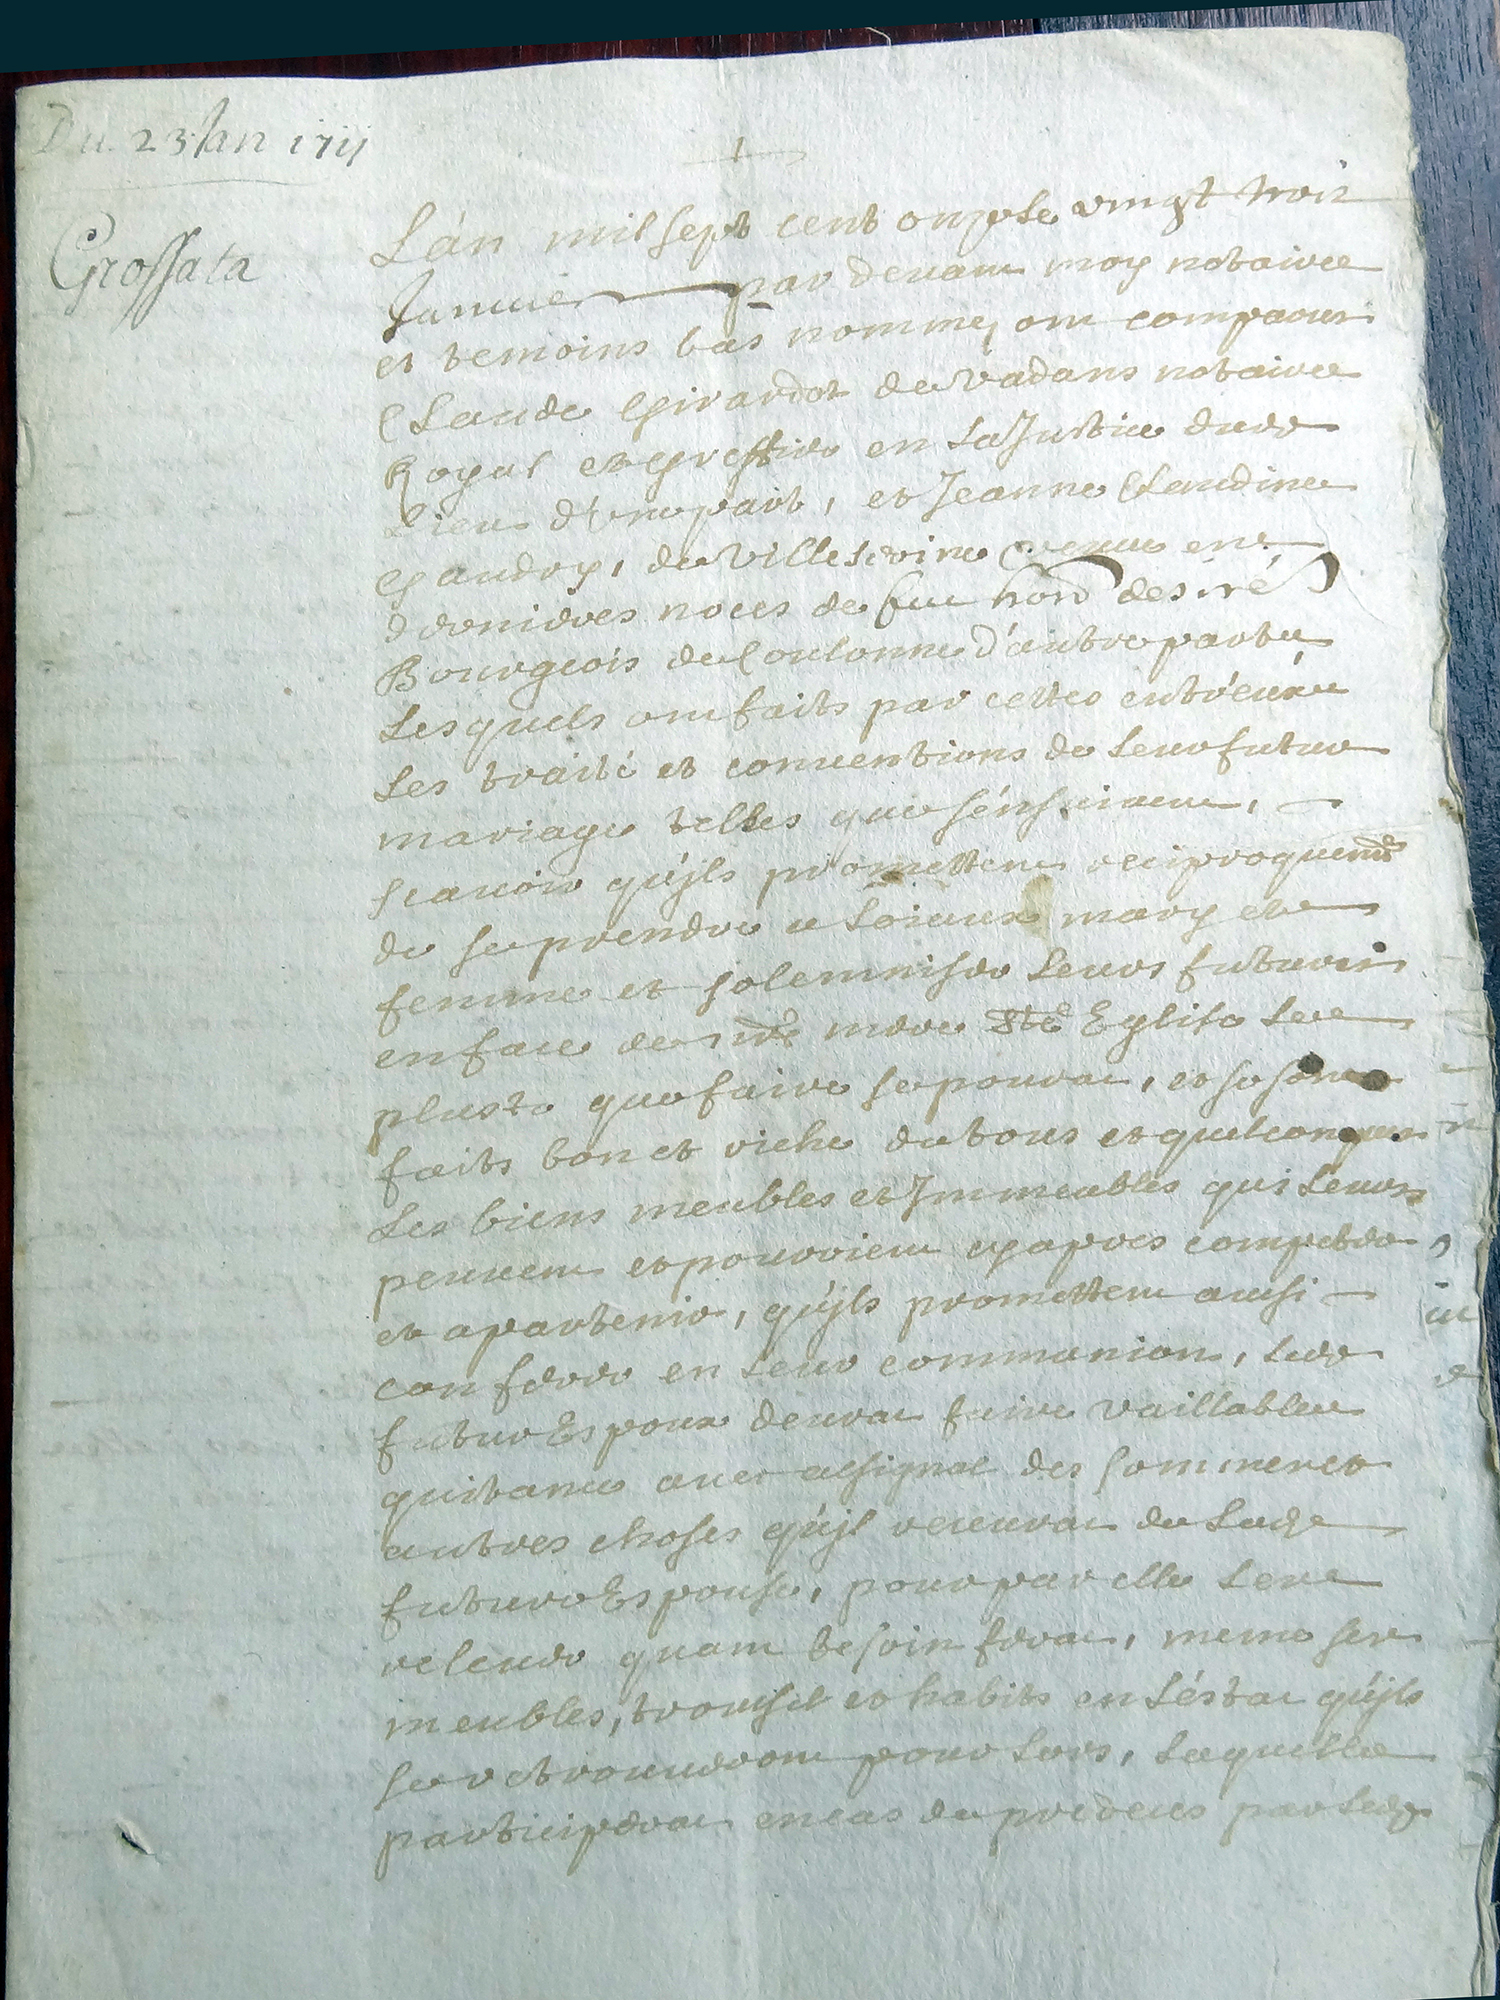 Du 23 Jan 1711
Grossata
L'án mil sept cent onze le vingt trois
Januier par deuant moy notaire
et temoins bas nommez ont comparus
Claude Girardot de Vadans notaire
Royal et greffier en la Justice dudt
Lieu d'une part, et Jeanne Claudine
Gaudry, de Villeseroine vefue en
dernieres noces de fut hond desiré
Bourgeois de Coulonne d'autre parte
Lesquels ont faits par cettes entr'eux
Les traité et conuentions de leur futur
mariage telles que s'énsuiuent,
scauoir qu'jls promettent reciproquemt
de se prendre a loiaux mary et
femme et solemniser leurs futures
en face de notre mere Ste Eglise le
plusto que faire se pourat, et se sont
faits bon et riche de tous et quelconques
Les biens meubles et Jmmeubles qui leurs
peuuent et pourrient cy apres competer
et apartenir, qu'jls promettent aussi
conferer en leur communion, ledt
futur Espoux deurat faire vaillable
quitance auec assignal des sommes et
autres choses qu'jl receurat de ladte
future Espouse, pour par elle les
releuer quant besoin serat, meme ses
meubles, troussel et habits en l'éstat qu'jls
se retrouueront pour lors, laquelle
participerat en cas de predeces par ledt